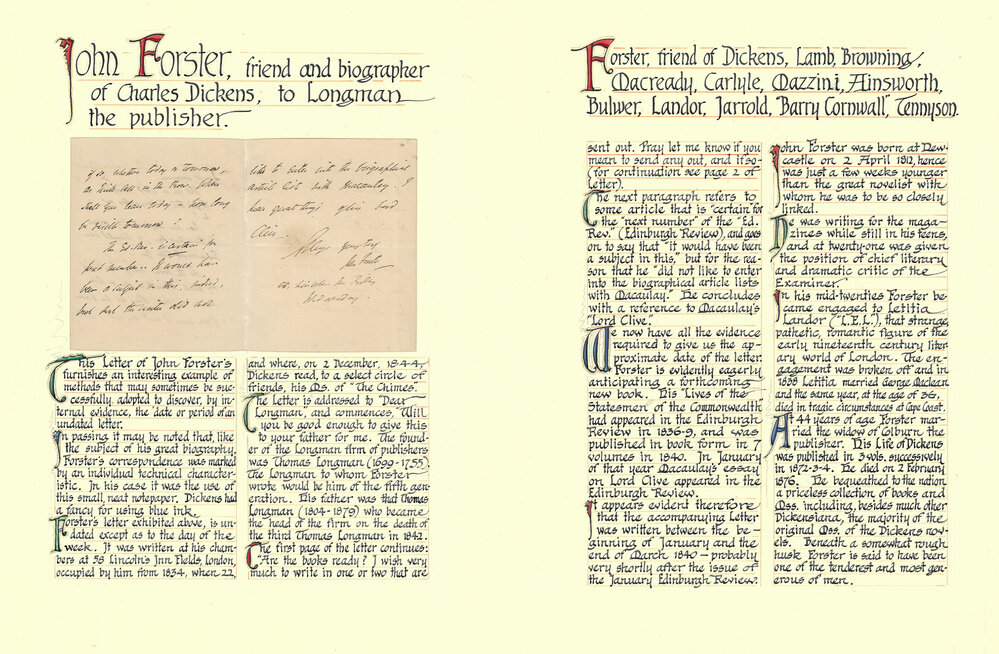 John Forster, friend and biographer
of Charles Dickens, to Longman
the publisher.
This Letter of John Forster's
furnishes an interesting example of
methods that may sometimes be suc-
cessfully adopted to discover, by in-
ternal evidence, the date or period of an
undated letter.
In passing it may be noted that, like
the subject of his great biography,
Forster's correspondence was marked
by an individual technical character-
istic. In his case it was the use of
this small, neat notepaper. Dickens had
a fancy for using blue ink.
Forster's letter exhibited above, is un-
dated except as to the day of the
week. It was written at his cham-
bers at 58 Lincoln's Inn Fields, London,
occupied by him from 1834, when 22,
and where, on 2 December, 1844,
Dickens read, to a select circle of
friends, his Ms. of "The Chimes".
The letter is addressed to "Dear
Longman, and commences, Will
you be good enough to give this
to your father for me. The found-
er of the Longman firm of publishers
was Thomas Longman (1699-1755).
The Longman to whom Forster
wrote would be him of the fifth gen-
eration. His father was that Thomas
Longman (1804-1879) who became
the head of the firm on the death of
the third Thomas Longman in 1842.
The first page of the letter continues:
"Are the books ready? I wish very
much to write in one or two that are
Forster, friend of Dickens, Lamb, Browning,
Macready, Carlyle, Mazzini, Ainsworth,
Bulwer, Landor, Jarrold, "Barry Cornwall", Tennyson.
sent out. Pray let me know if you
mean to send any out, and if so-
(for continuation see page 2 of
letter).
The next paragraph refers to
some article that is "certain" for
the "next number" of the "Ed.
Rev." (Edinburgh Review), and goes
on to say that "it would have been
a subject in this," but for the rea-
son that he "did not like to enter
into the biographical article lists
with Macaulay." He concludes
with a reference to Macaulay's
"Lord Clive".
We now have all the evidence
required to give us the ap-
proximate date of the letter.
Forster is evidently eagerly
anticipating a forthcoming
new book. His "Lives of the
Statesmen of the Commonwealth"
had appeared in the Edinburgh
Review in 1836-9, and was
published in book form in 7
volumes in 1840. In January
of that year Macaulay's essay
on Lord Clive appeared in the
Edinburgh Review.
It appears evident therefore
that the accompanying Letter
was written between the be-
ginning of January and the
end of March 1840 – probably
very shortly after the issue of
the January Edinburgh Review.
John Forster was born at New-
castle on 2 April 1812, hence
was just a few weeks younger
than the great novelist with
whom he was to be so closely
linked.
He was writing for the maga-
zines while still in his teens,
and at twenty-one was given
the position of chief literary
and dramatic critic of the
Examiner.
In his mid-twenties Forster be-
came engaged to Letitia
Landor ("L.E.L."), that strange,
pathetic, romantic figure of the
early nineteenth century liter-
ary world of London. The en-
gagement was broken off and in
1838 Letitia married George Maclean
and the same year, at the age of 36,
died in tragic circumstances at Cape Coast.
At 44 years of age Forster mar-
ried the widow of Colburn the
publisher. His Life of Dickens
was published in 3 vols. successively
in 1872-3-4. He died on 2 February
1876. He bequeathed to the nation
a priceless collection of books and
Mss. including, besides much other
Dickensiana, the majority of the
original Mss. of the Dickens nov-
els. Beneath a somewhat rough
husk Forster is said to have been
one of the tenderest and most gen-
erous of men.